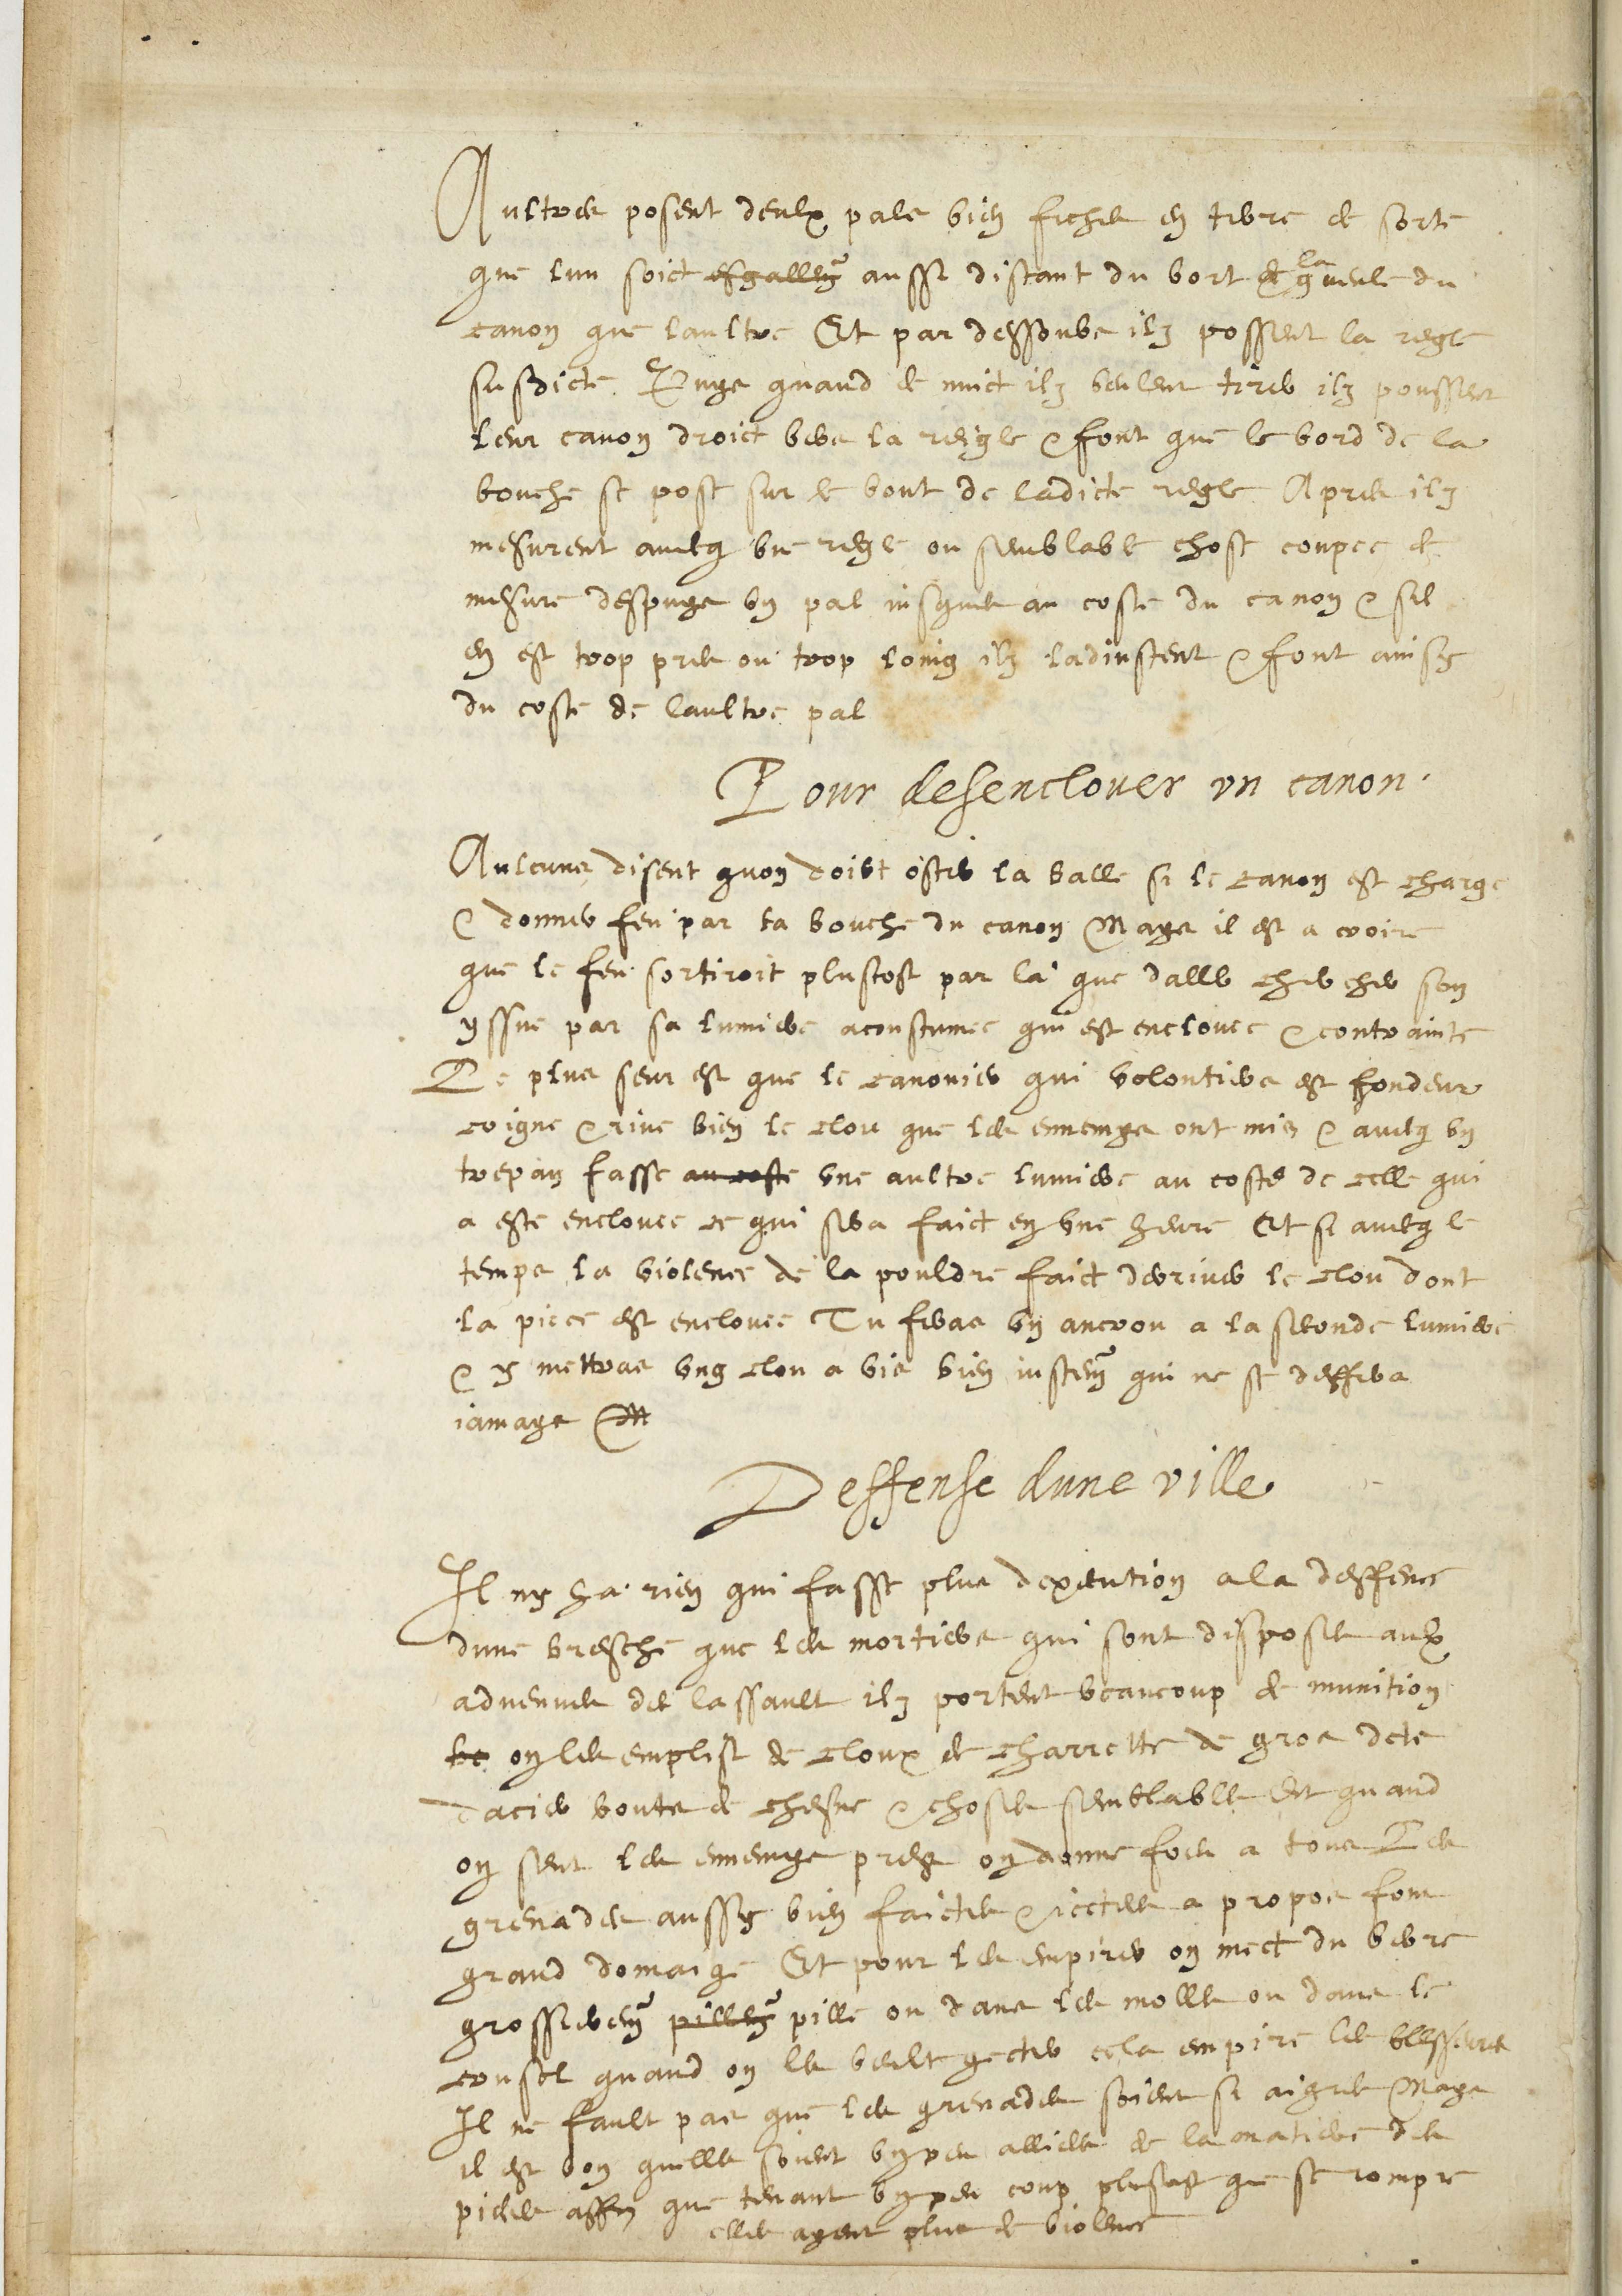 Aultres posent deulx pals bien fichés en terre de sorte
que lun soict esgallem{ent} aussi distant du bort de la gueule du
canon que laultre Et par dessoubs ilz possent la regle
susdicte Puys quand de nuict ilz veulent tirer ilz poussent
leur canon droict vers la reigle & font que le bord de la
bouche se pose sur le bout de ladicte regle Apres ilz
mesurent avecq une regle ou semblable chose coupee de
mesure despuys un pal iusques au coste du canon & sil
en est trop pres ou trop loing ilz ladiustent & font ainsy
du coste de laultre pal
Pour desenclouer un canon.
Aulcuns disent quon doibt oster la balle si le canon est charge
& donner feu par la bouche du canon Mays il est a croire
que le feu sortiroit plustost par la que daller chercher son
yssue par sa lumiere acoustumee qui est enclouee & contrainte
Le plus seur est que le canonier qui volontiers est fondeur
coigne & rive bien le clou que les ennemys ont mis & avecq un
trepan fasse au coste une aultre lumiere au coste de celle qui
a este enclouee ce qui sera faict en une heure Et si avecq le
temps la violence de la pouldre faict deriver le clou dont
la piece est enclouee Tu feras un ancrou a la seconde lumiere
& y mettras ung clou a vis bien iustem{ent} qui ne se deffera
iamays
Deffense dune ville
Il ny ha rien qui fasse plus dexecution a la deffence
dune bresche que les mortiers qui sont disposes aulx
advenues de lassault ilz portent beaucoup de munition
be on les emplist de cloux de charrette de gros dets
dacier bouts de chesne & choses semblables Et quand
on sent les ennemys pres on donne foeu a tous Les
grenades aussy bien faictes & iectees a propos font
grand domaige Et pour les empirer on mect du verre
grossierem{ent} pillem{ent} pille ou dans les molles ou dans le
creuset quand on les veult gecter cela empire les blesseures
Il ne fault pas que les grenades soient si aigres Mays
il est bon quelles soient un peu alliees de la matiere des
pieces affin que tenant un peu coup plustost que se rompre
elles ayent plus de violence